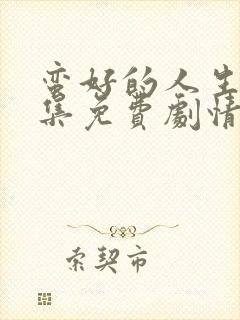 蛮好的人生
集免费劇情
索契市